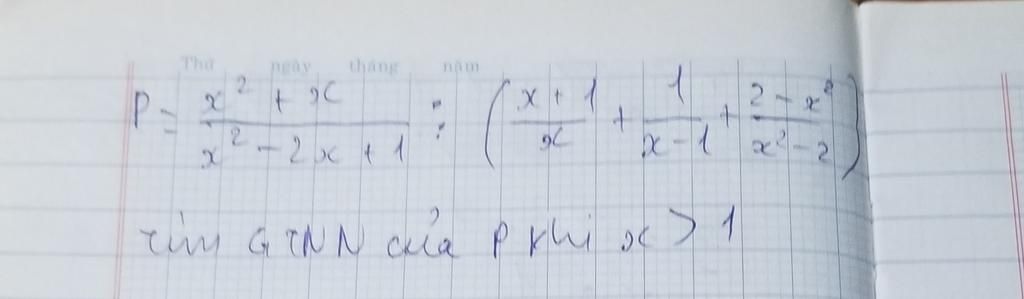 Thứ ngày tháng năm
P = \frac{x^2 + x}{x^2 - 2x + 1} : \left( \frac{x + 1}{x} + \frac{1}{x - 1} + \frac{2 - x^2}{x^2 - 2} \right)
tìm GTNN của P khi x > 1